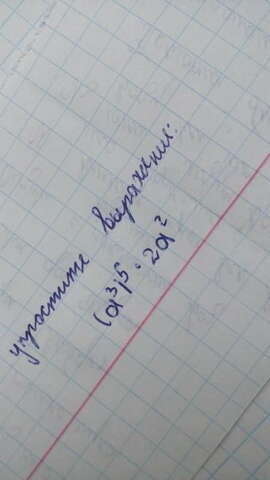 упростите выражения:
(a³)⁵ · 2a²